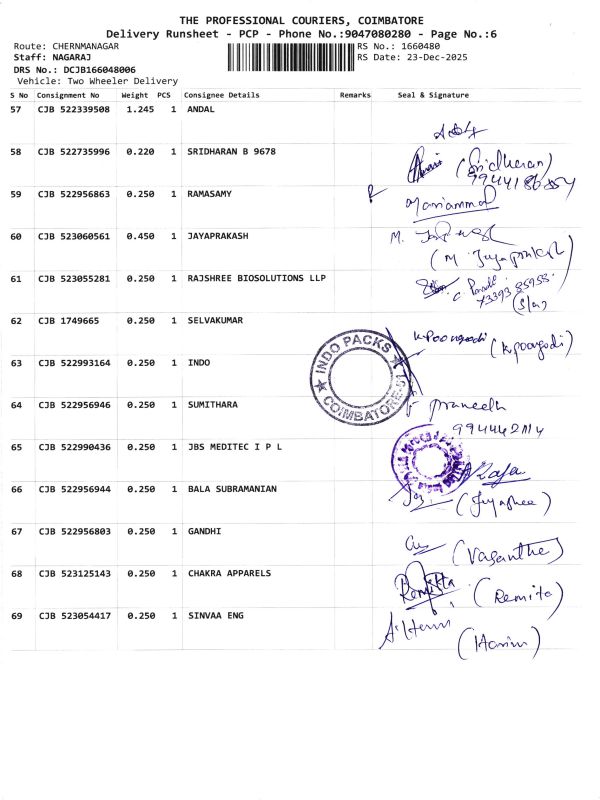 THE PROFESSIONAL COURIERS, COIMBATORE
Delivery Runsheet - PCP - Phone No.:9047080280 - Page No.:6
Route: CHERNMANAGAR
RS No.: 1660480
Staff: NAGARAJ
RS Date: 23-Dec-2025
DRS No.: DCJB166048006
Vehicle: Two Wheeler Delivery
S No Consignment No Weight PCS Consignee Details Remarks Seal & Signature
57 CJB 522339508 1.245 1 ANDAL
58 CJB 522735996 0.220 1 SRIDHARAN B 9678
(Sridharan)
59 CJB 522956863 0.250 1 RAMASAMY
Mariammal
60 CJB 523060561 0.450 1 JAYAPRAKASH
M.
(M Jayaprakash)
61 CJB 523055281 0.250 1 RAJSHREE BIOSOLUTIONS LLP
62 CJB 1749665 0.250 1 SELVAKUMAR
K.Poongodi (K.poongodi)
63 CJB 522993164 0.250 1 INDO
INDO PACKS
COIMBATORE
64 CJB 522956946 0.250 1 SUMITHARA
Praneeth
65 CJB 522990436 0.250 1 JBS MEDITEC I P L
66 CJB 522956944 0.250 1 BALA SUBRAMANIAN
67 CJB 522956803 0.250 1 GANDHI
68 CJB 523125143 0.250 1 CHAKRA APPARELS
(Remita)
69 CJB 523054417 0.250 1 SINVAA ENG